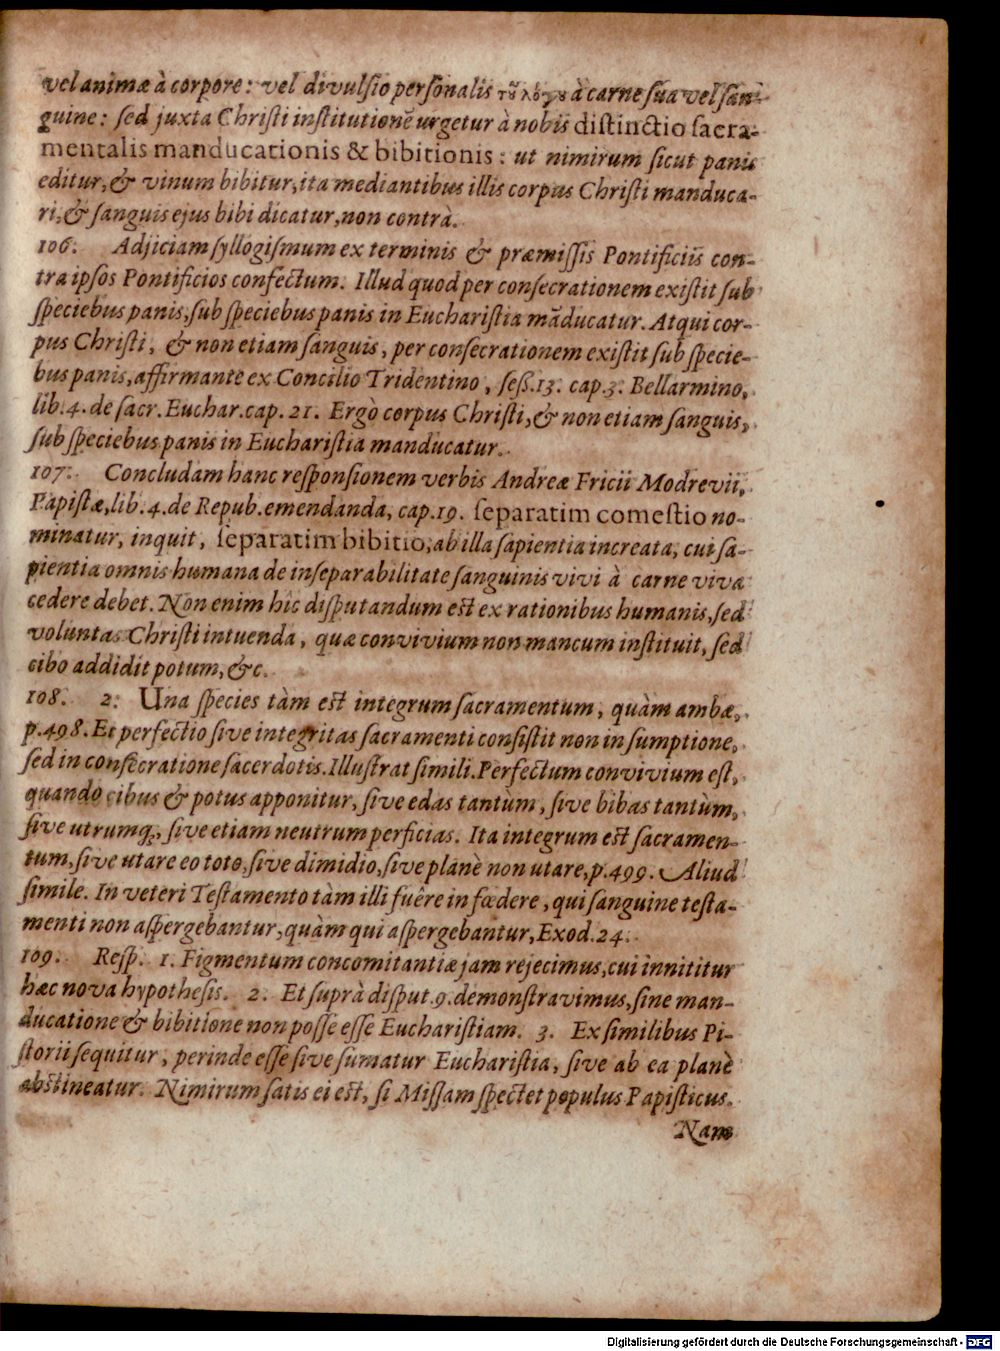 vel animæ à corpore: vel divulsio personalis τοῦ λόγου à carne sua vel san-
guine: sed juxta Christi institutionē urgetur à nobis distinctio sacra-
mentalis manducationis & bibitionis: ut nimirum sicut panis
editur, & vinum bibitur, ita mediantibus illis corpus Christi manduca-
ri, & sanguis ejus bibi dicatur, non contrà.
106. Adjiciam syllogismum ex terminis & præmissis Pontificiis con-
tra ipsos Pontificios confectum. Illud quod per consecrationem existit sub
speciebus panis, sub speciebus panis in Eucharistia māducatur. Atqui cor-
pus Christi, & non etiam sanguis, per consecrationem existit sub specie-
bus panis, affirmante ex Concilio Tridentino, seß. 13. cap. 3. Bellarmino,
lib. 4. de sacr. Euchar. cap. 21. Ergò corpus Christi, & non etiam sanguis,
sub speciebus panis in Eucharistia manducatur.
107. Concludam hanc responsionem verbis Andreæ Fricii Modrevii,
Papistæ, lib. 4. de Repub. emendanda, cap. 19. separatim comestio no-
minatur, inquit, separatim bibitio, ab illa sapientia increata, cui sa-
pientia omnis humana de inseparabilitate sanguinis vivi à carne viva
cedere debet. Non enim hîc disputandum est ex rationibus humanis, sed
voluntas Christi intuenda, quæ convivium non mancum instituit, sed
cibo addidit potum, &c.
108. 2. Una species tàm est integrum sacramentum, quàm ambæ,
p. 498. Et perfectio sive integritas sacramenti consistit non in sumptione,
sed in consecratione sacerdotis. Illustrat simili. Perfectum convivium est,
quando cibus & potus apponitur, sive edas tantùm, sive bibas tantùm,
sive utrumq;, sive etiam neutrum perficias. Ita integrum est sacramen-
tum, sive utare eo toto, sive dimidio, sive planè non utare, p. 499. Aliud
simile. In veteri Testamento tàm illi fuêre in fœdere, qui sanguine testa-
menti non aspergebantur, quàm qui aspergebantur, Exod. 24.
109. Resp. 1. Figmentum concomitantiæ jam rejecimus, cui innititur
hæc nova hypothesis. 2. Et suprà disput. 9. demonstravimus, sine man-
ducatione & bibitione non posse esse Eucharistiam. 3. Ex similibus Pi-
storii sequitur, perinde esse sive sumatur Eucharistia, sive ab ea planè
abstineatur. Nimirum satis ei est, si Missam spectet populus Papisticus.
Nam
Digitalisierung gefördert durch die Deutsche Forschungsgemeinschaft - DFG